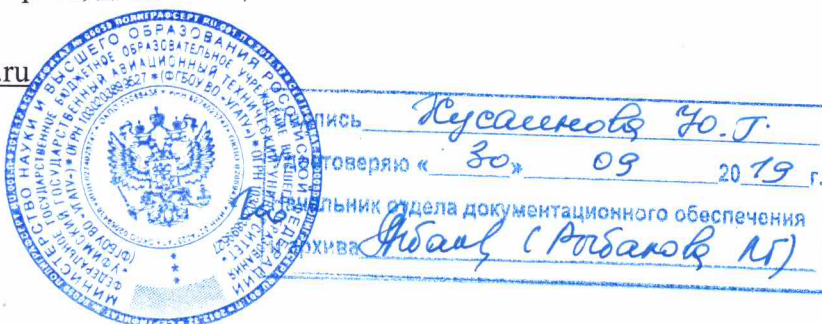 .ru
МИНИСТЕРСТВО НАУКИ И ВЫСШЕГО ОБРАЗОВАНИЯ РОССИЙСКОЙ ФЕДЕРАЦИИ
ФЕДЕРАЛЬНОЕ ГОСУДАРСТВЕННОЕ БЮДЖЕТНОЕ ОБРАЗОВАТЕЛЬНОЕ УЧРЕЖДЕНИЕ ВЫСШЕГО ОБРАЗОВАНИЯ
УФИМСКИЙ ГОСУДАРСТВЕННЫЙ АВИАЦИОННЫЙ ТЕХНИЧЕСКИЙ УНИВЕРСИТЕТ
(ФГБОУ ВО «УГАТУ»)
Подпись Хусаинова Ю. Г.
Удостоверяю « 30 » 09 2019 г.
Начальник отдела документационного обеспечения
и архива